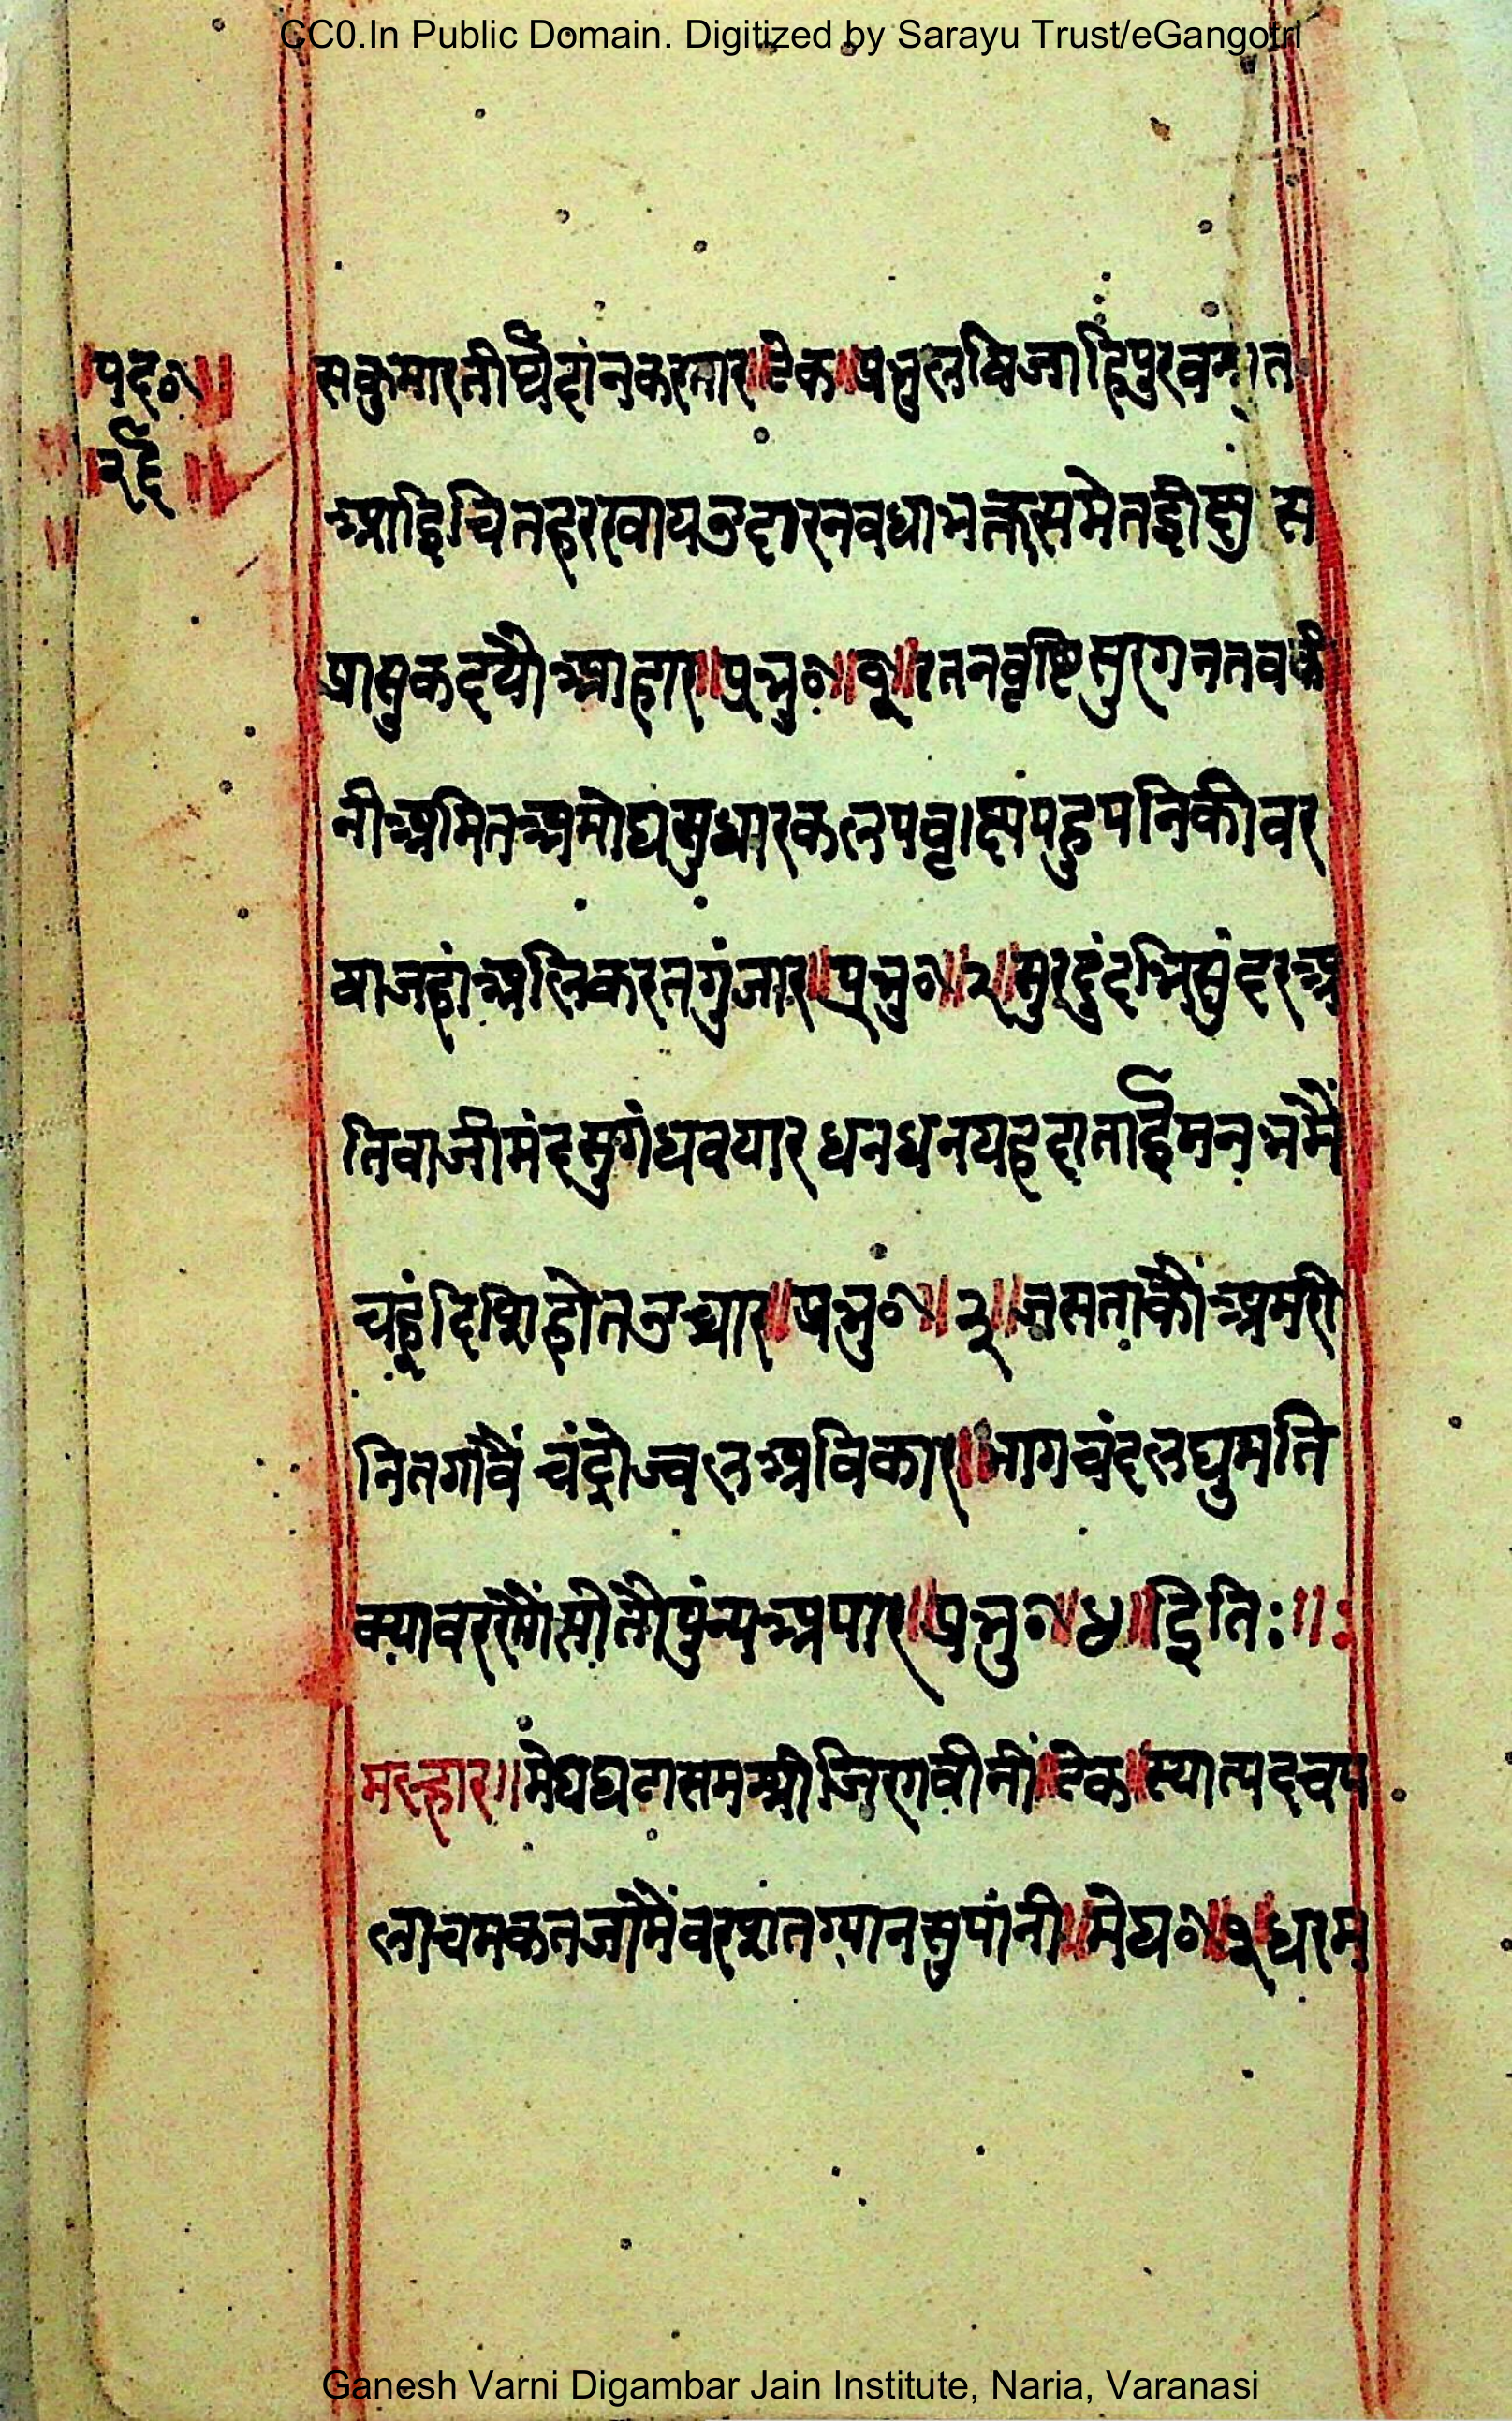 CC0.In Public Domain. Digitized by Sarayu Trust/eGangotri
पद०॥
२६
सकुमारतीर्थैदांनकरतार॥टेक॥प्रभुलषिजाहिपुरवन।त
आइचितहरखायउदारनवधाभक्तसमेतइीछु स
प्रासुकदयौआहार॥प्रभु०॥१॥रतनवृष्टिसुरगनतवकी
नीअमितअमोघसुधारकलपवृाछपहुपनिकीवर
षाजहांअलिकरतगुंजार॥प्रभु०॥२॥सुरदुंदभिसुंदरअ
तिवाजीमंदसुगंधवयारधनधनयहदाताइमनभमैं
चहूंदिशिहोतउचार॥प्रभु०॥३॥जसताकौंअमरी
नितगावैं चंद्रोज्वलअविकार॥भागचंदलघुमति
क्यावररगौंसोतौपुंन्यअपार॥प्रभु०॥४॥इति:॥:
मल्हार॥मेघघटासमश्रीजिरगवीनीं॥टेक॥स्यात्पदचप
लाचमकतजामैंवरषातग्यानसुपांनी॥मेघ०॥१॥धरम
Ganesh Varni Digambar Jain Institute, Naria, Varanasi